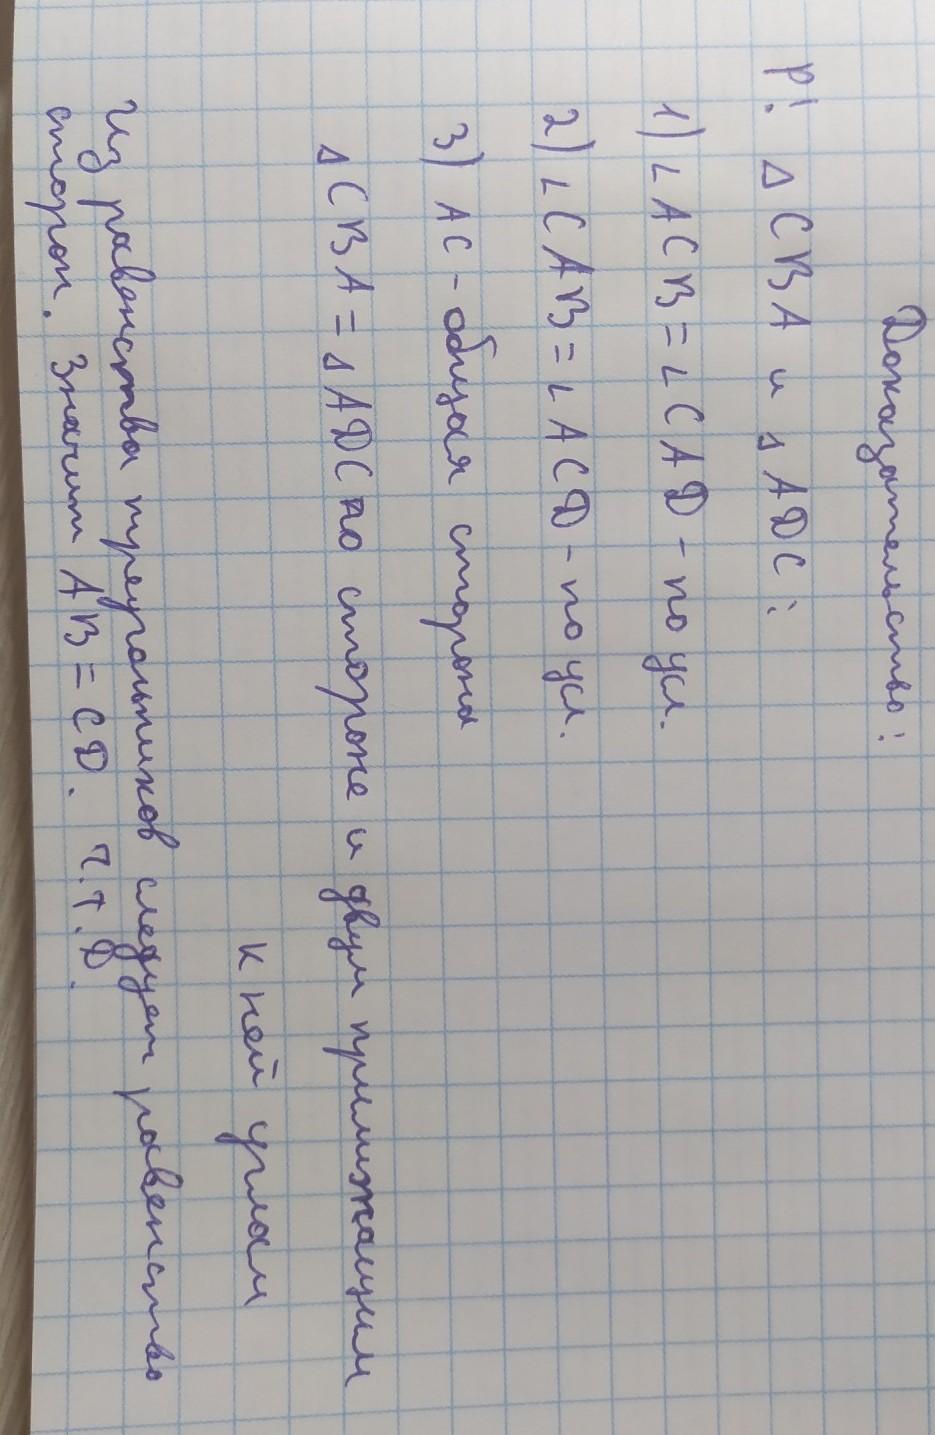 Доказательство:
Р! Δ CBA и Δ ADC:
1) ∟ACB = ∟CAD - по усл.
2) ∟CAB = ∟ACD - по усл.
3) AC - общая сторона
Δ CBA = Δ ADC по стороне и двум прилижащим
к ней углам
Из равенства треугольников следует равенство
сторон. Значит AB = CD. Ч.Т.Д.